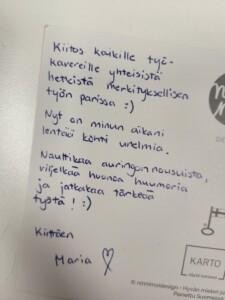 Kiitos kaikille työ-
kavereille yhteisistä
hetkistä merkityksellisen
työn parissa :)
Nyt on minun aikani
lentää kohti unelmia.
Nauttikaa auringon nousuista,
viljelkää huonoa huumoria
ja jatkakaa tärkeää
työtä! :)
Kiittäen
Maria ♡
KARTO